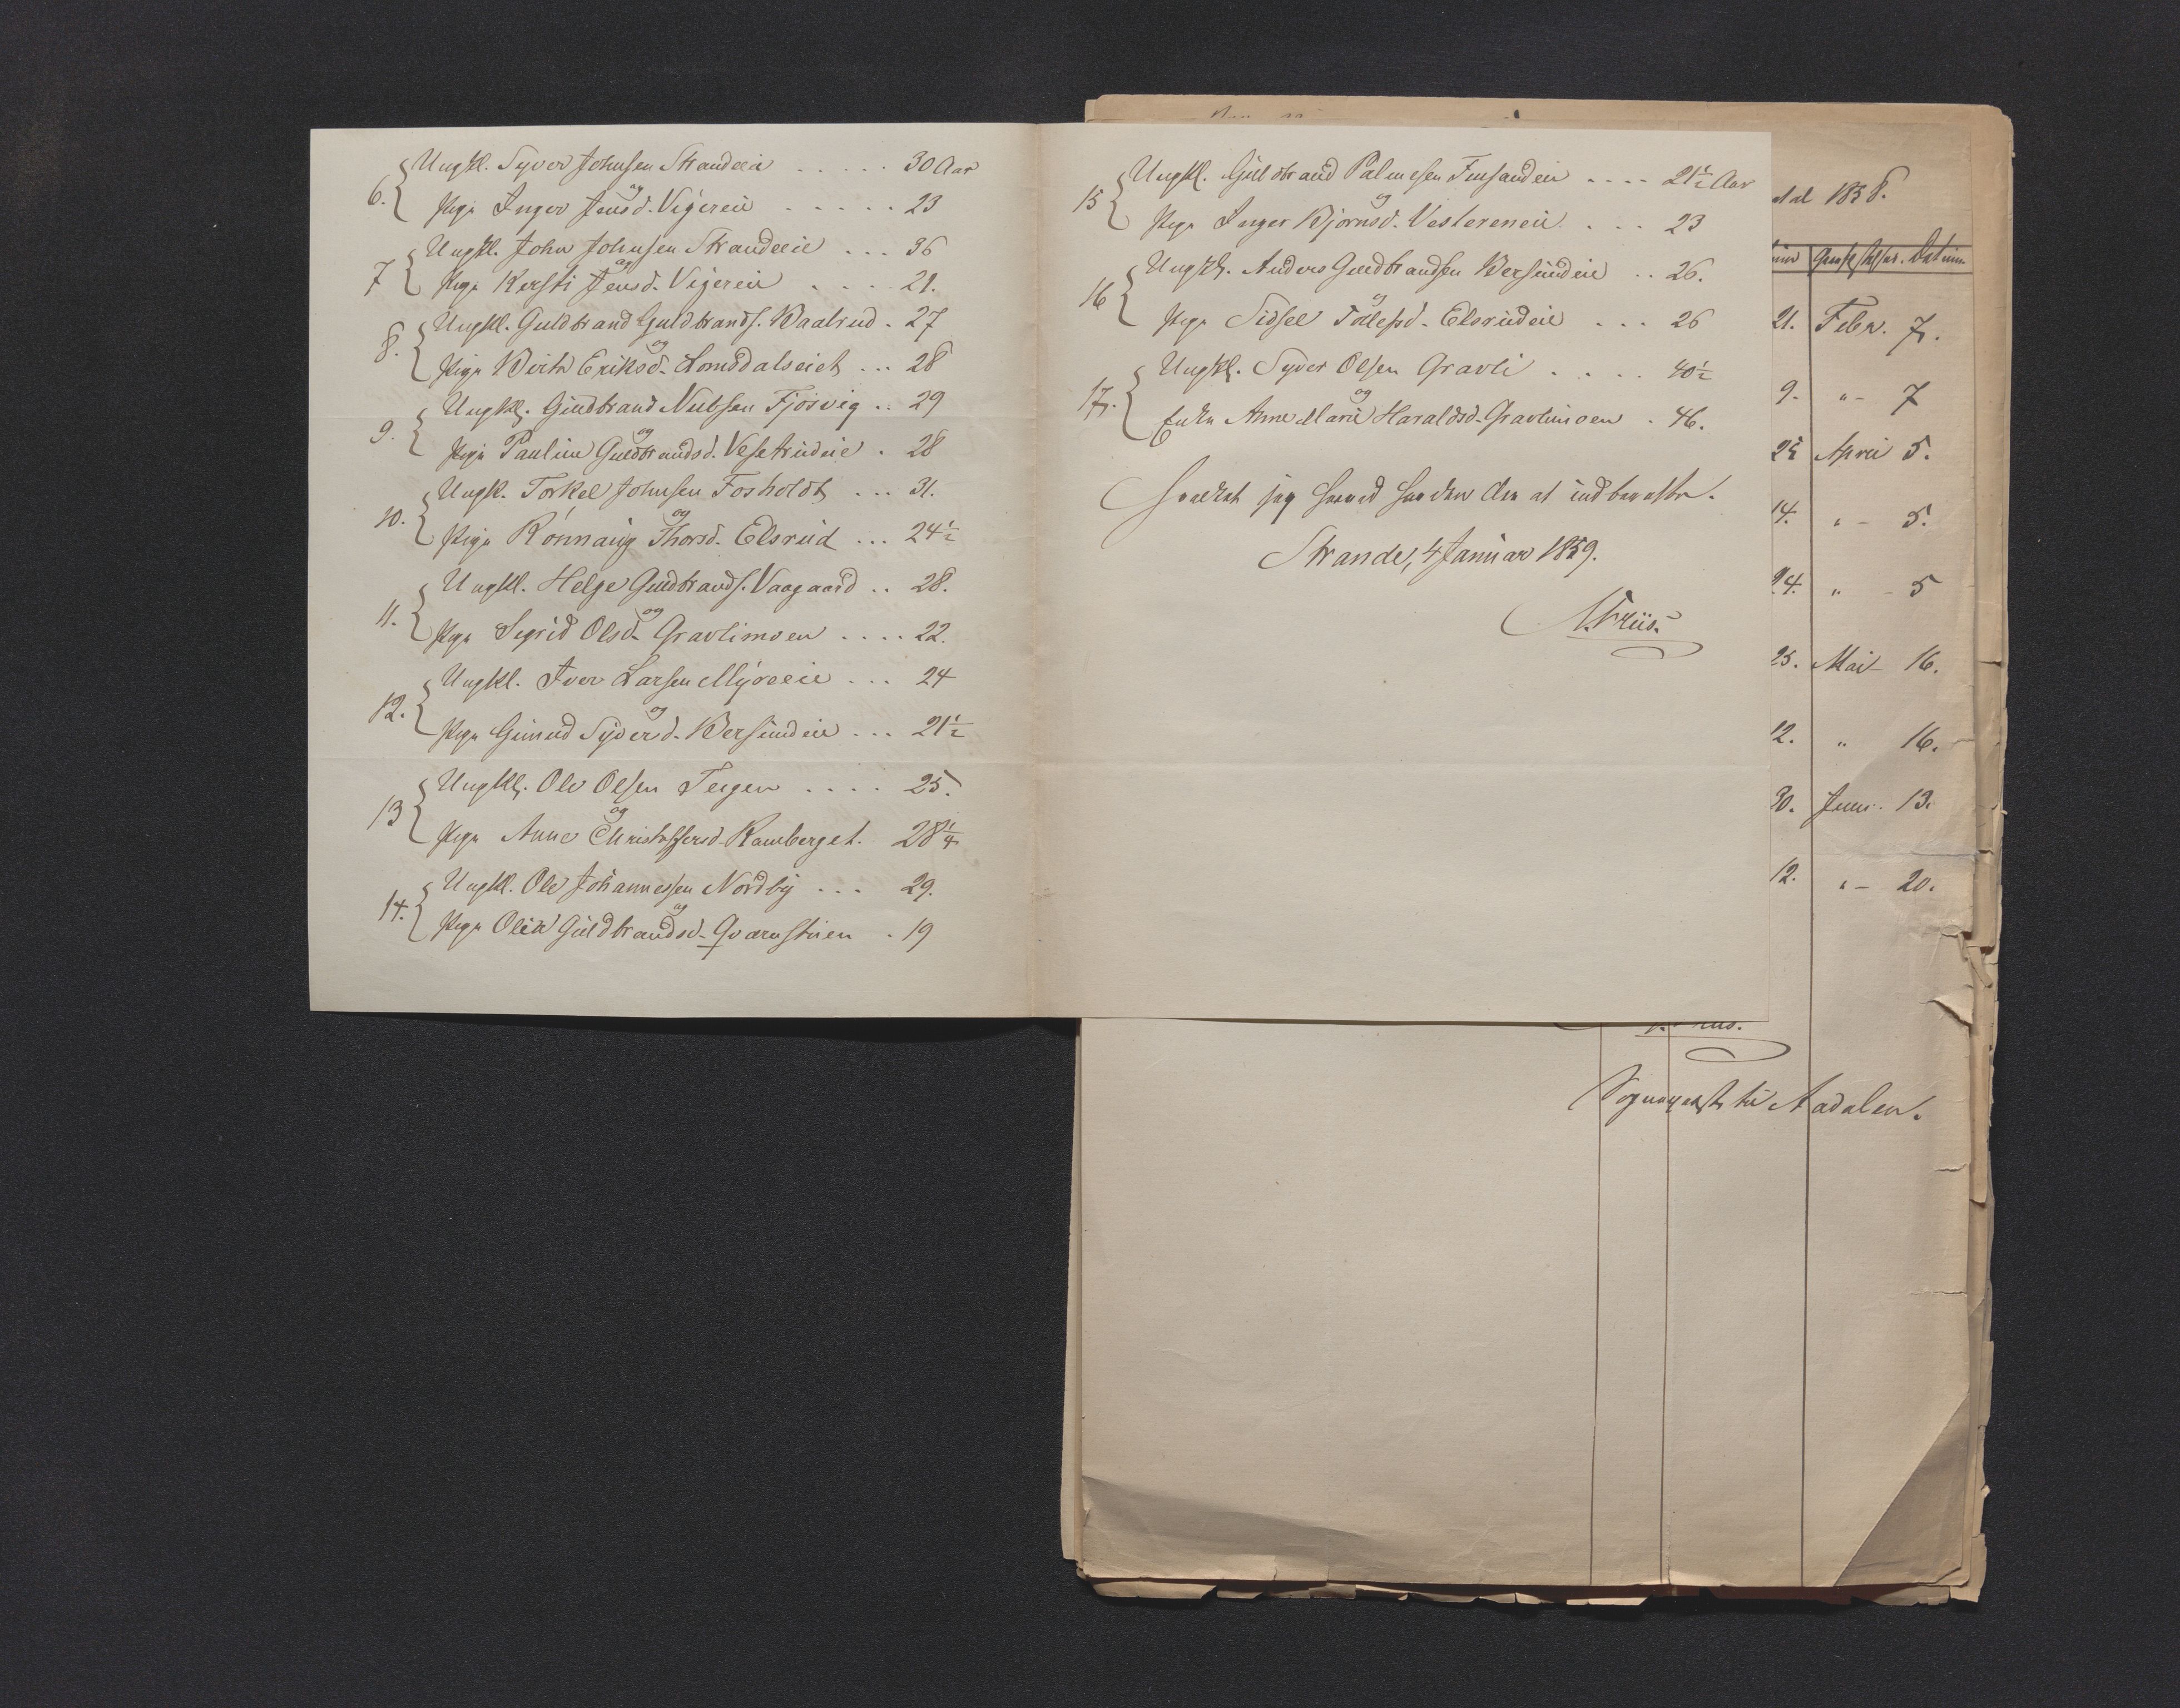 6. Ungkl. Syver Johnsen Strandeie ..... 30 Aar
og
Pige Inger Jensd. Vigereie ..... 23
7 Ungkl. John Johnsen Strandeeie ... 36
og
Pige Kersti Jensd. Vigereie .... 21.
8. Ungkl. Guldbrand Guldbrands. Baalrud . 27
og
Pige Berthe Eriksd. Lomsdalseiet ... 28
9. Ungkl. Guldbrand Nubsen Fjösvig .. 29
og
Pige Pauline Guldbrandsd. Vesetrudeie . 28
10. Ungk. Torkel Johnsen Fosholdt ... 31.
og
Pige Rönnaug Thorsd. Elsrud ... 24½
11. Ungkl. Helge Guldbrands. Vaagaard .. 28.
og
Pige Sigrid Olsd. Gravlimoen .... 22.
12. Ungkl. Iver Larsen Myreeie ... 24
og
Pige Gunild Syversd. Bersundeie ... 21½
13 Ungkl. Ole Olsen Teigen .... 25.
og
Pige Anne Christoffersd. Ramberget. 28¼
14. Ungkl. Ole Johannessen Nordby ... 29.
og
Pige Olea Guldbrandsd. Qvernstuen . 19
15 Ungkl. Guldbrand Palmesen Finsandeie .... 21½ Aar
og
Pige Inger Bjørnsd. Vestereneie .... 23
16 Ungkl. Anders Guldbrandsen Bersundeie .. 26.
og
Pige Sidsel Tollefsd. Elsrudeie ... 26
17. Ungkl. Syver Olsen Gravli .... 40½
og
Enke Anne Marie Haraldsd. Gravlimoen . 46.
Hvilket jeg herved har den Ære at indberette.
Strande, 4 Januar 1859.
N. Friis.
dal 1858.
Datum
21. Febr. 7.
9. " - 7
April 5.
14. " - 5.
14. " - 5
25. Mai 16.
12. " 16.
30. Juni. 13.
12. " - 20.
Sognepræst til Aadalen.